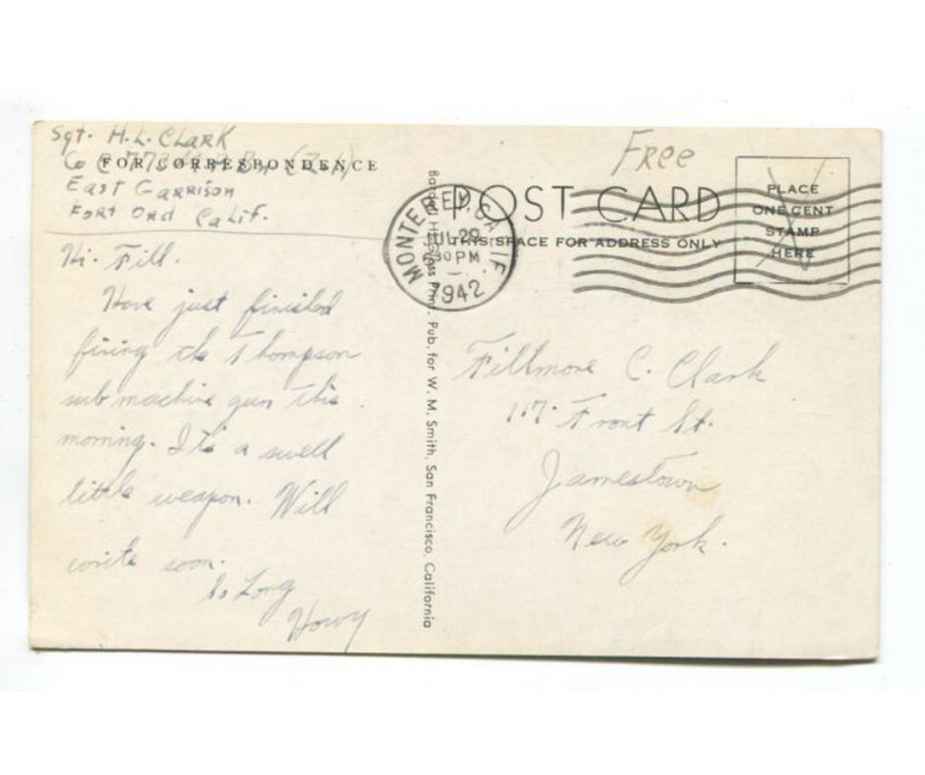 Sgt. H.L. Clark
Co C
FOR CORRESPONDENCE
East Garrison
Fort Ord Calif.
Hi. Fill.
Have just finished
firing the Thompson
sub machine gun this
morning. It's a swell
little weapon. Will
write soon.
So Long
Howy
Pub. for W. M. Smith, San Francisco, California
Free
POST CARD
THIS SPACE FOR ADDRESS ONLY
PLACE
ONE CENT
STAMP
HERE
MONTEREY, CALIF.
JUL 29
30 PM
1942
Fillmore C. Clark
117. Front St.
Jamestown
New York.